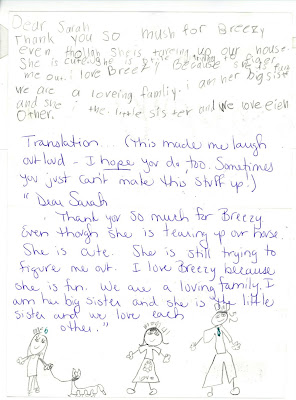 Dear Sarah
Thank you so mush for Breezy
even thollah She is tareing up our house.
She is cute. She is trying to figer
me out. i love Breezy Because she is fun
we are a loveing family. i am her big sister
and she i the little sister and we love eich
Other.
Translation... (This made me laugh
out loud - I hope you do, too. Sometimes
you just can't make this stuff up!)
"Dear Sarah
Thank you so much for Breezy
Even though she is tearing up our house.
She is cute. She is still trying to
figure me out. I love Breezy because
she is fun. We are a loving family. I
am her big sister and she is the little
sister and we love each
other."